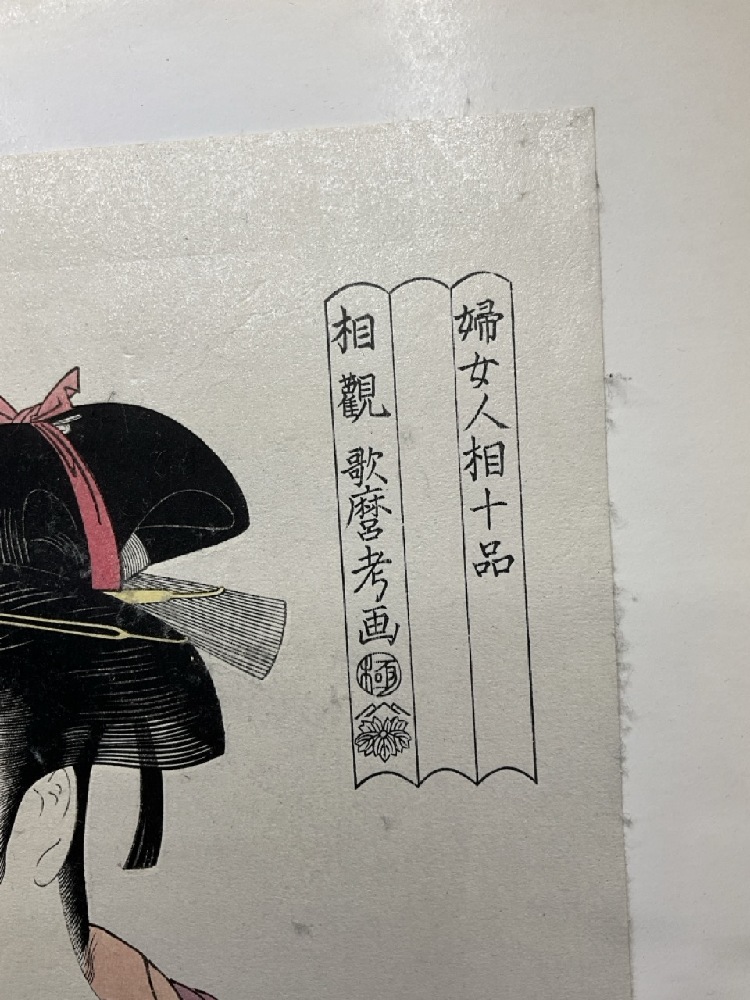 婦女人相十品
相觀 歌麿考画
極